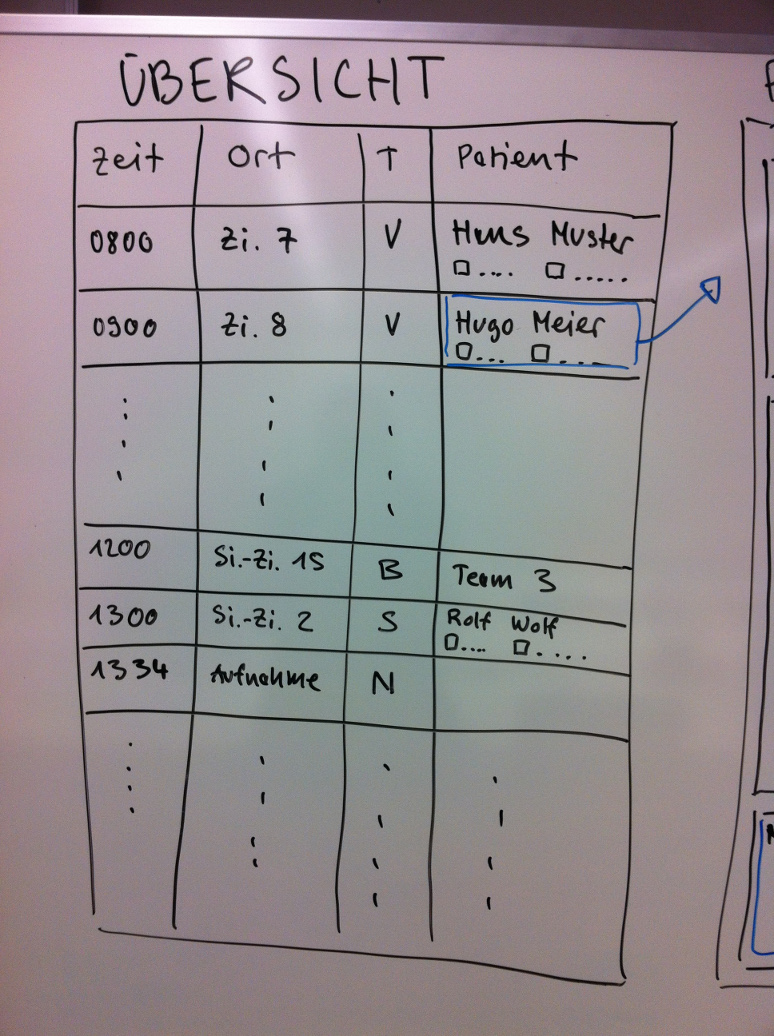 ÜBERSICHT
Zeit Ort T Patient
0800 Zi. 7 V Hans Muster
....  .....
0900 Zi. 8 V Hugo Meier
...  ....
1200 Si.-Zi. 15 B Team 3
1300 Si.-Zi. 2 S Rolf Wolf
....  ....
1334 Aufnahme N